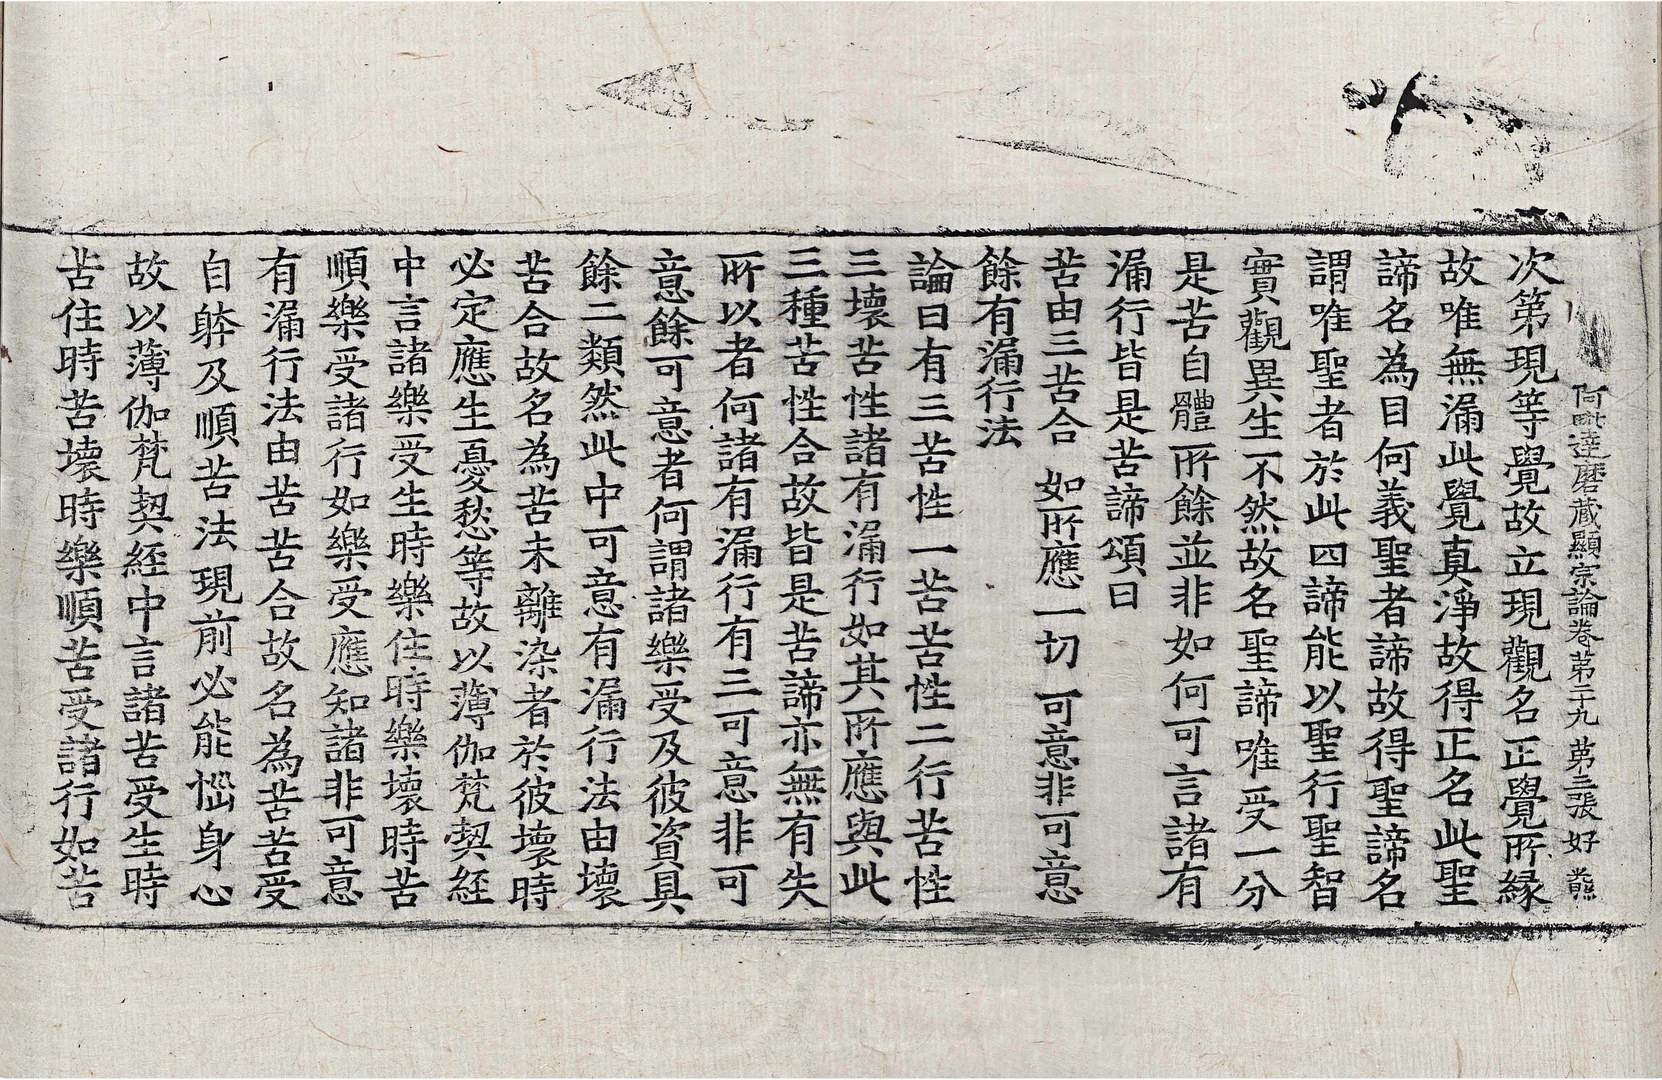 阿毗達磨藏顯宗論卷第二十九 第三張 好 㷱
次第現等覺故立現觀名正覺所緣
故唯無漏此覺真淨故得正名此聖
諦名為目何義聖者諦故得聖諦名
謂唯聖者於此四諦能以聖行聖智
實觀異生不然故名聖諦唯受一分
是苦自體所餘並非如何可言諸有
漏行皆是苦諦頌曰
苦由三苦合 如所應一切 可意非可意
餘有漏行法
論曰有三苦性一苦苦性二行苦性
三壞苦性諸有漏行如其所應與此
三種苦性合故皆是苦諦亦無有失
所以者何諸有漏行有三可意非可
意餘可意者何謂諸樂受及彼資具
餘二類然此中可意有漏行法由壞
苦合故名為苦未離染者於彼壞時
必定應生憂愁等故以薄伽梵契經
中言諸樂受生時樂住時樂壞時苦
順樂受諸行如樂受應知諸非可意
有漏行法由苦苦合故名為苦苦受
自躰及順苦法現前必能惱身心
故以薄伽梵契經中言諸苦受生時
苦住時苦壞時樂順苦受諸行如苦